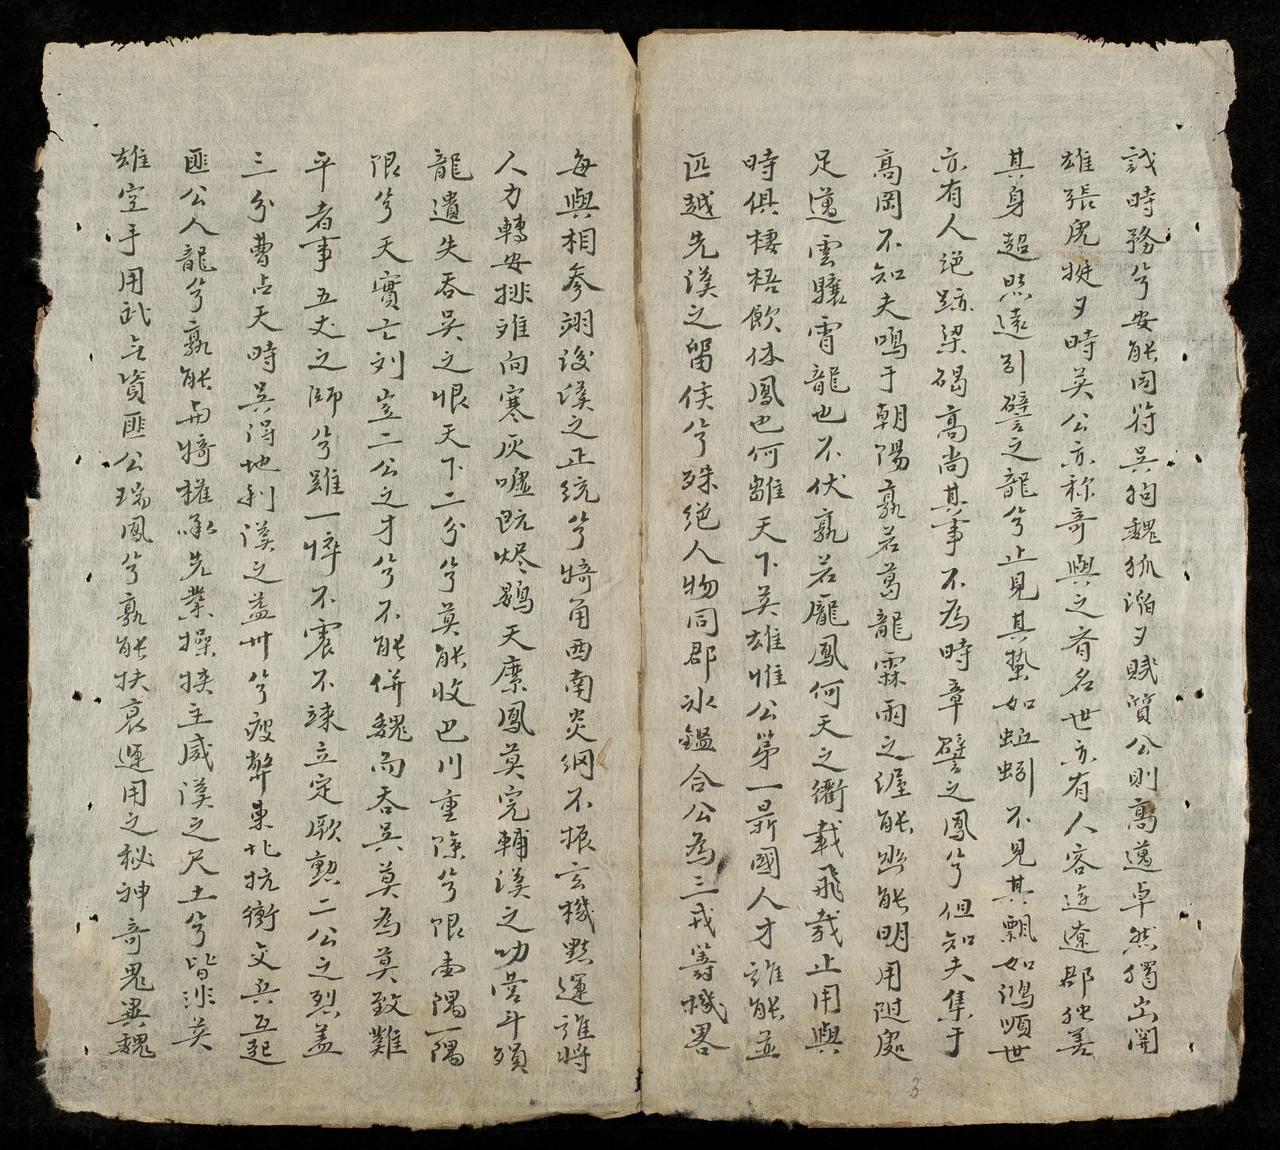 識時務兮安能同符吳狗魏狐淄夕賦質公則高邁卓然獨出開
雄張虎挺夕時英公亦称奇與之齊名世亦有人容遠遼郡独善
其身超然遠引譬之龍兮止見其蟄如蚯蚓不見其飄如鴻順世
亦有人絕跡梁碭高尚其事不為時章譬之鳳兮但知夫集于
高岡不知夫鳴于朝陽孰若葛龍霖雨之渥能幽能明用隨處
足邁雲驤霄龍也不伏孰若龐鳳何天之衢載飛載止用與
時俱棲梧飲体鳳也何雖天下英雄惟公第一鼎國人才誰能並
匹越先漢之留侯兮殊絕人物同郡氷鑑合公為三戎籌機畧
每與相参翊後漢之正統兮犄角西南炎綱不振玄機黙運誰將
人力轉安排难向寒灰噓既烬鵾天縻鳳莫完輔漢之功營斗殞
龍遺失吞吳之恨天下二分兮莫能收巴川重險兮限壹隅一隅
限兮天實亡刘豈二公之才兮不能併魏而吞吳莫為莫致難
平者事五丈之師兮雖一悴不震不竦立定厥勲二公之烈盖
三分曹占天時吳得地利漢之益州兮疲弊東北抗衝交兵互起
匪公人龍兮孰能与犄權承先業操挾主威漢之尺土兮皆非英
雄空手用武無資匪公瑞鳳兮孰能扶衰運用之秘神奇鬼異魏
3